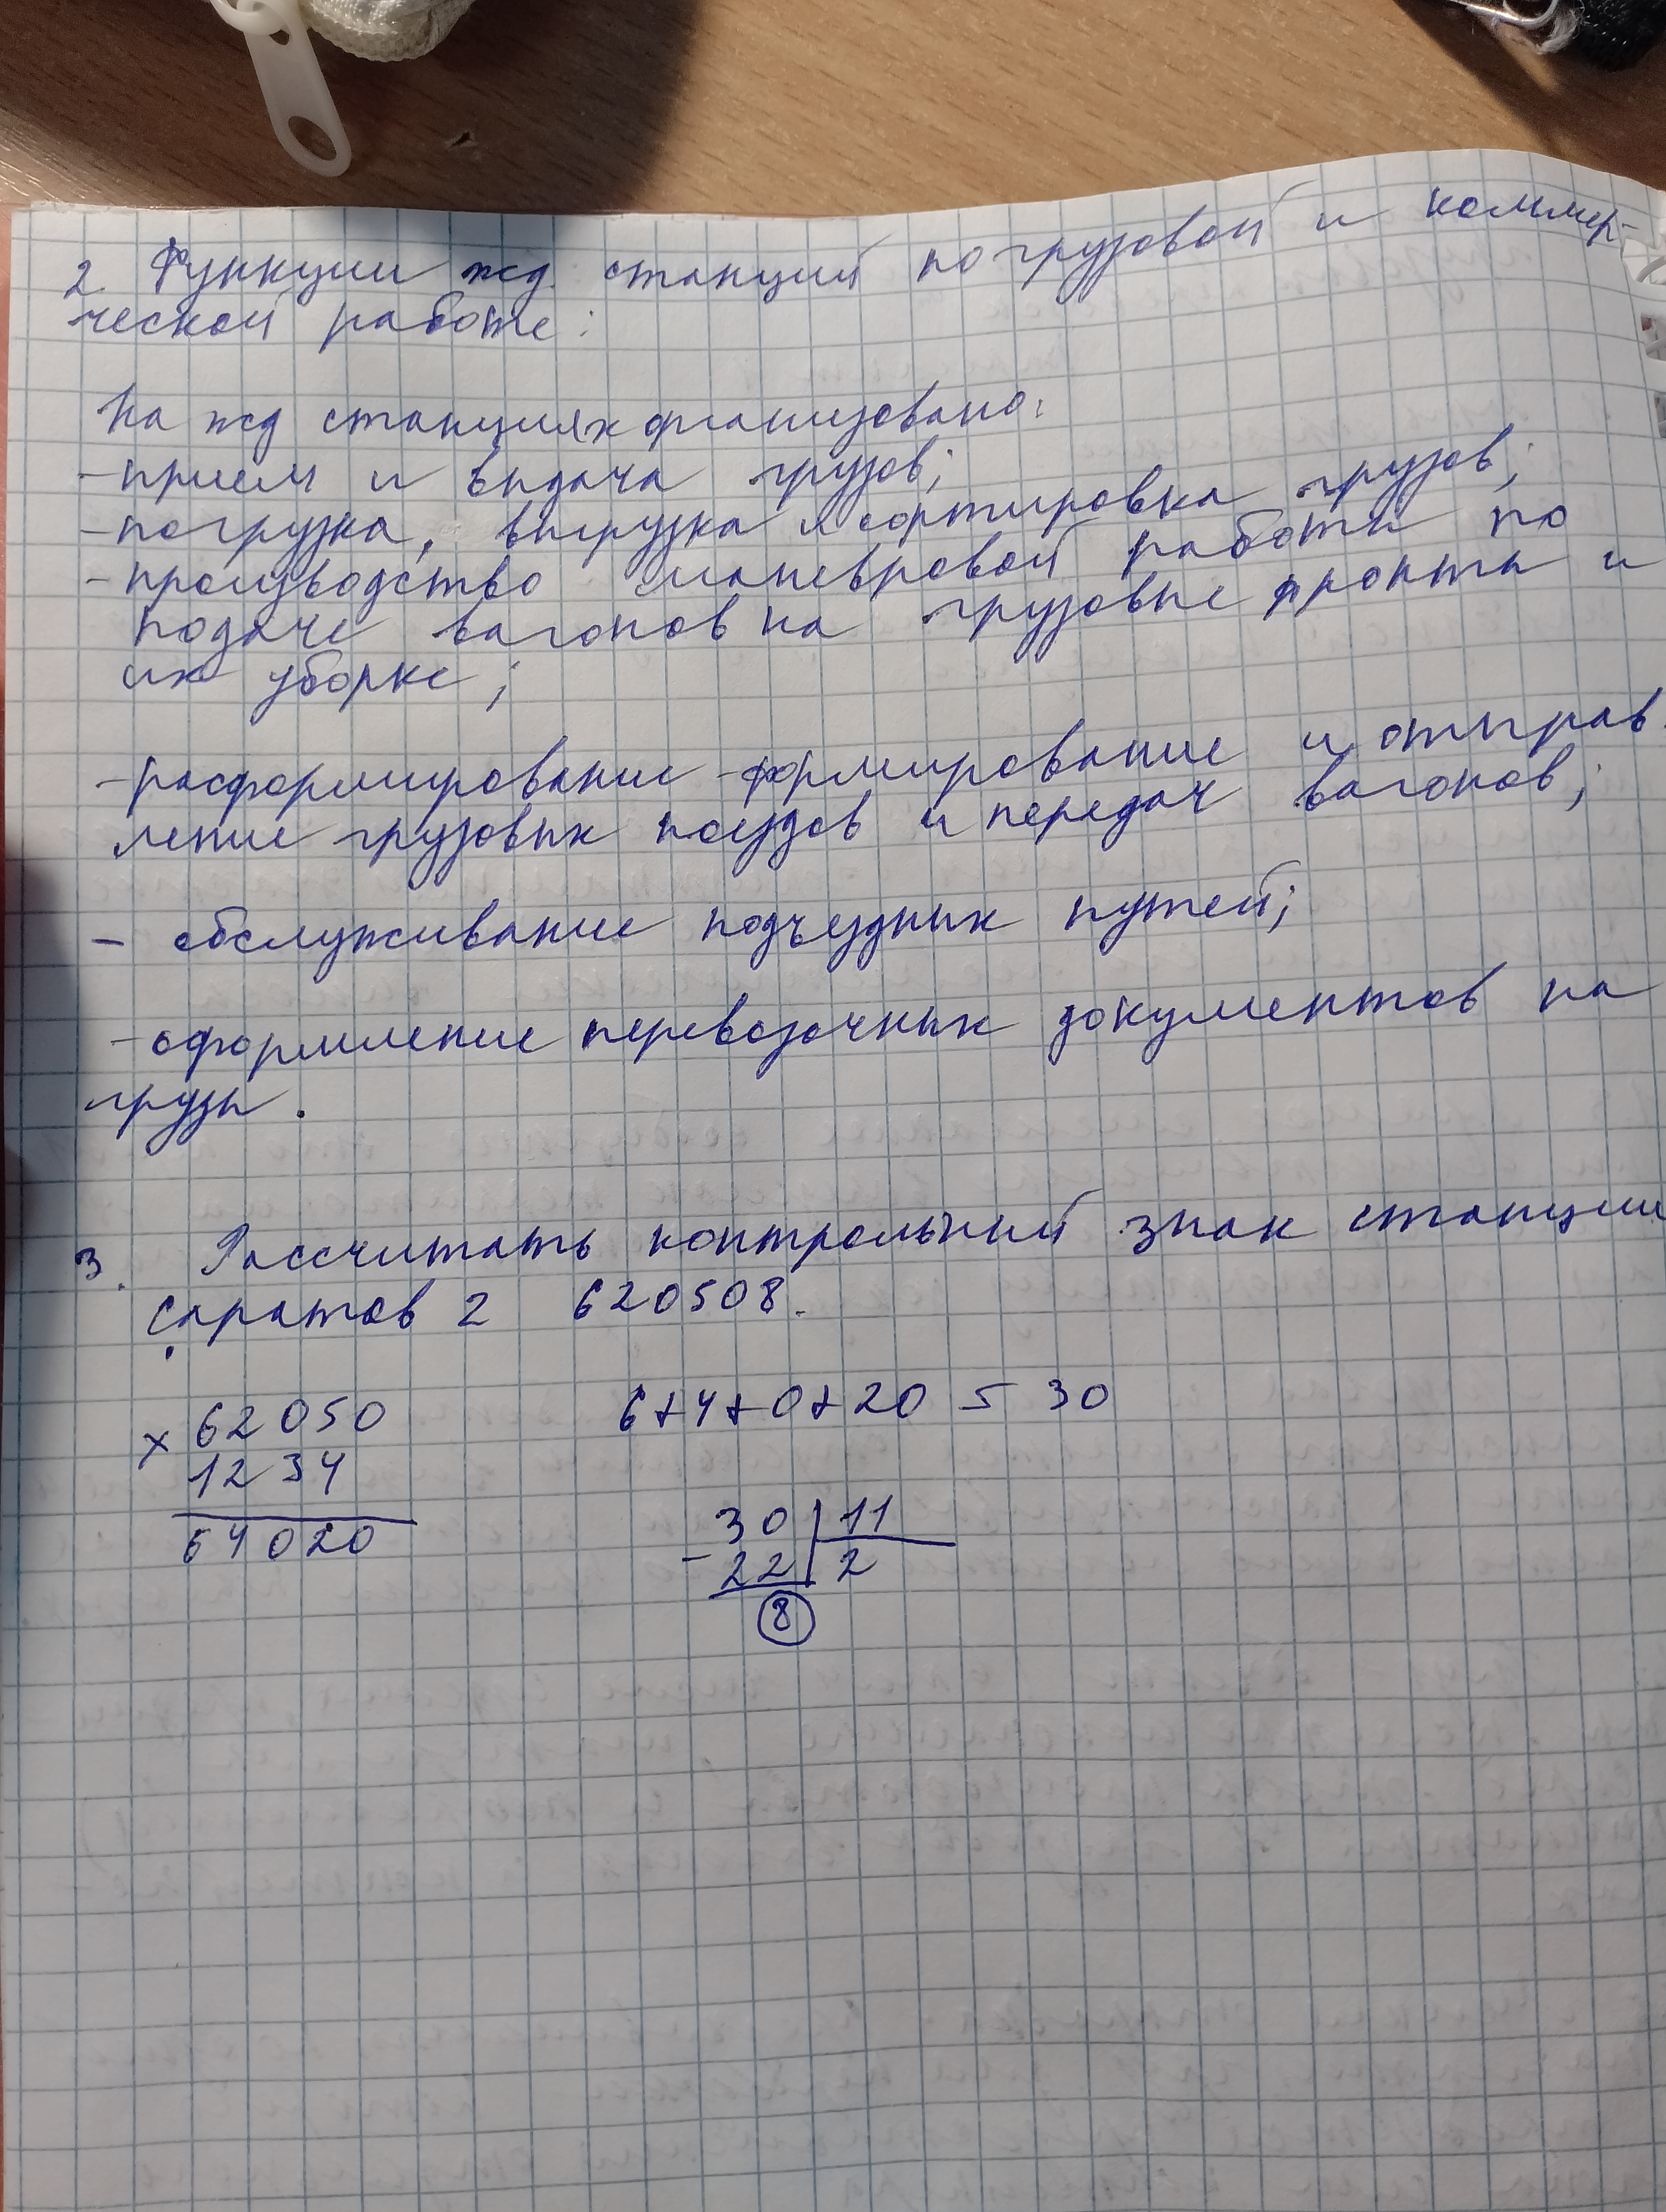 2. Функции жд. станций по грузовой и коммер-
ческой работе:
На жд станциях организовано:
- прием и выдача грузов;
- погрузка, выгрузка и сортировка грузов;
- производство маневровой работы по
подаче вагонов на грузовые фронты и
их уборке;
- расформирование-формирование и отправ-
ление грузовых поездов и передач вагонов;
- обслуживание подъездных путей;
- оформление перевозочных документов на
грузы.
3. Рассчитать контрольный знак станции
Саратов 2 620508.
× 62050
1234
64020
6+4+0+20 = 30
30 | 11
- 22 | 2
8